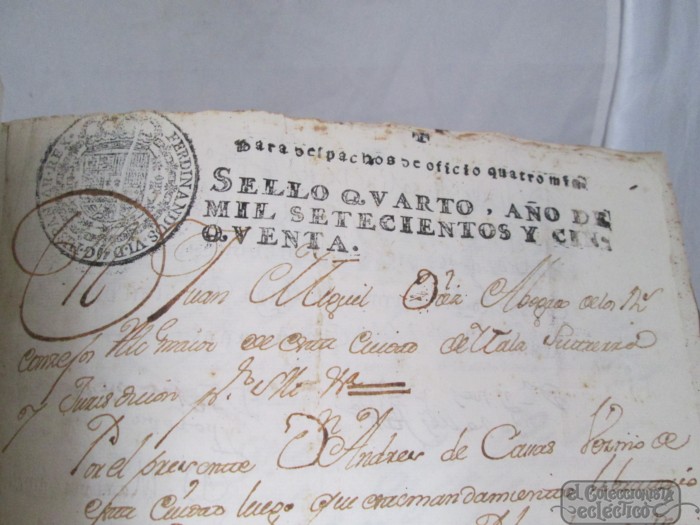 FERDINANDVS VI D G
Para despachos de oficio quatro mrs
SELLO QVARTO, AÑO DE
MIL SETECIENTOS Y CIN-
QVENTA.
Dn Juan Miguel Diaz Abogdo de los Rs
consejos Alc maior de esta Ciudad de tierra
y Jurisdicion pr S M
Por el presente Dn Andres de Casas Vezino de
esta Ciudad luego que este mandamiento
el Coleccionista
ecléctico